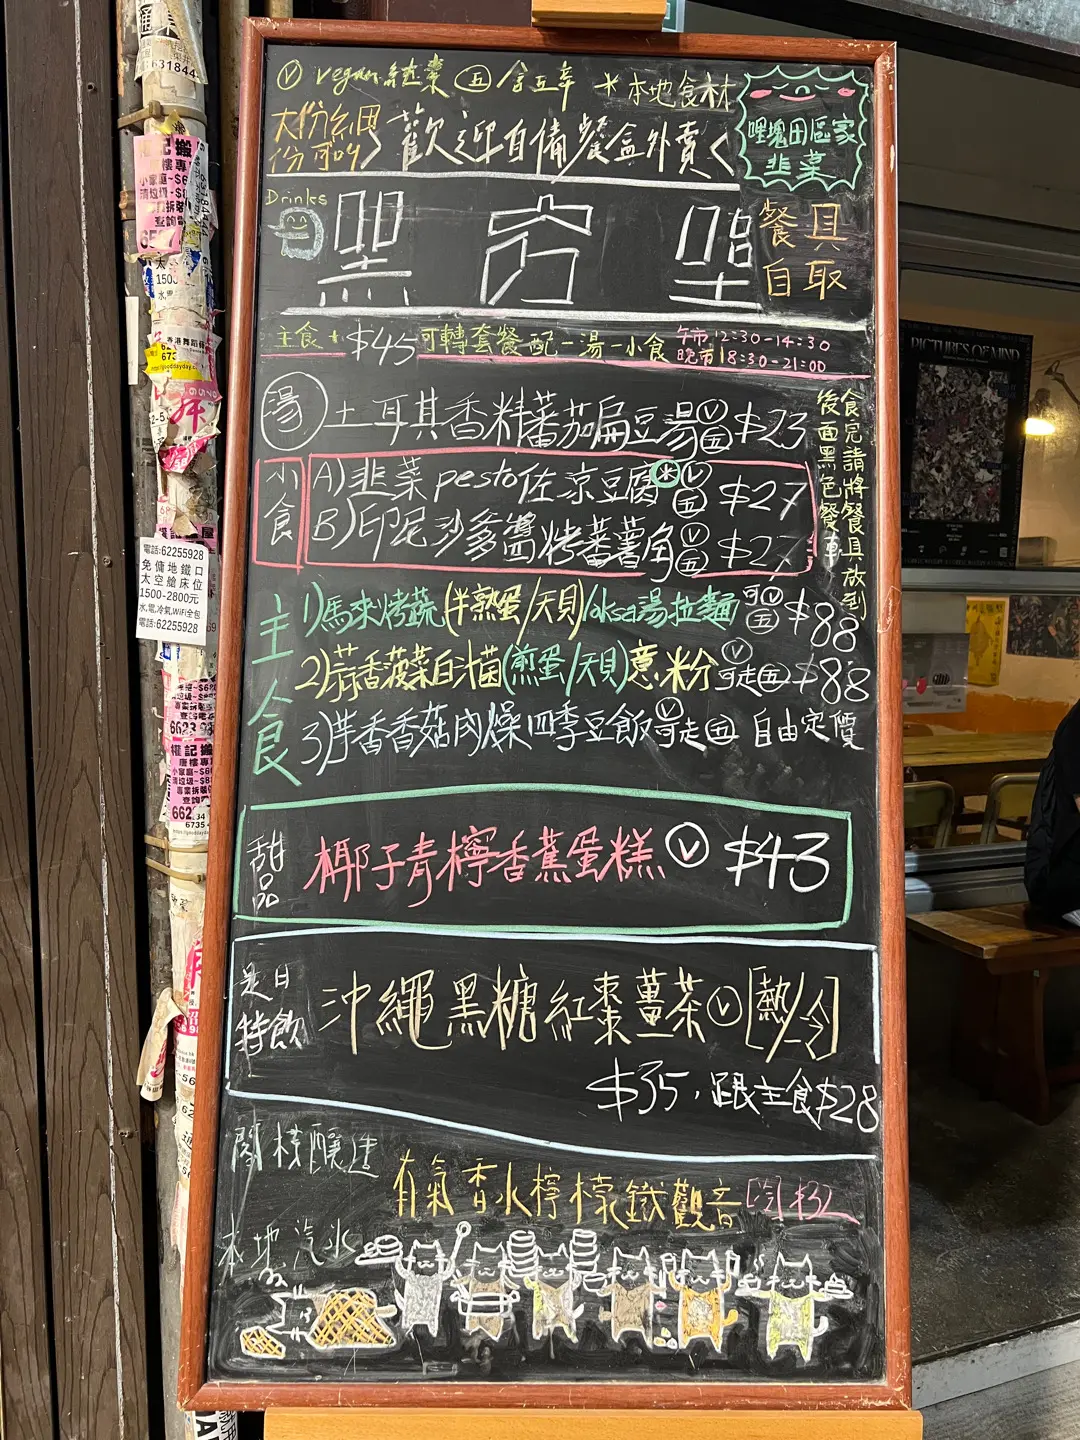 Ⓥ vegan純素 ㊄含五辛 *本地食材
大份細份可叫
歡迎自備餐盒外賣
哩塊田區家
韭菜
Drinks
黑窗里
餐具
自取
主食+$45可轉套餐配一湯一小食
午市12:30-14:30
晚市18:30-21:00
湯 土耳其香料蕃茄扁豆湯Ⓥ㊄ $23
小食
A)韭菜pesto佐凉豆腐*Ⓥ㊄ $27
B)印尼沙爹醬烤蕃薯角Ⓥ㊄ $27
食完請將餐具放到
後面黑色餐車
主食
1)馬來烤蔬(半熟蛋/天貝)laksa湯拉麵可Ⓥ㊄ $88
2)蒜香菠菜白汁菌(煎蛋/天貝)意粉Ⓥ可走㊄ $88
3)芋香香菇肉燥四季豆飯Ⓥ可走㊄ 自由定價
甜品
椰子青檸香蕉蛋糕Ⓥ $43
是日特飲
沖繩黑糖紅棗薑茶Ⓥ[熱/冷]
$35,跟主食$28
本地汽水
有氣香水檸檬鐵觀音[凍]$32
PICTURES OF MIND
電話:62255928
免傭地鐵口
太空艙床位
1500-2800元
水,電,冷氣,WiFi全包
電話:62255928